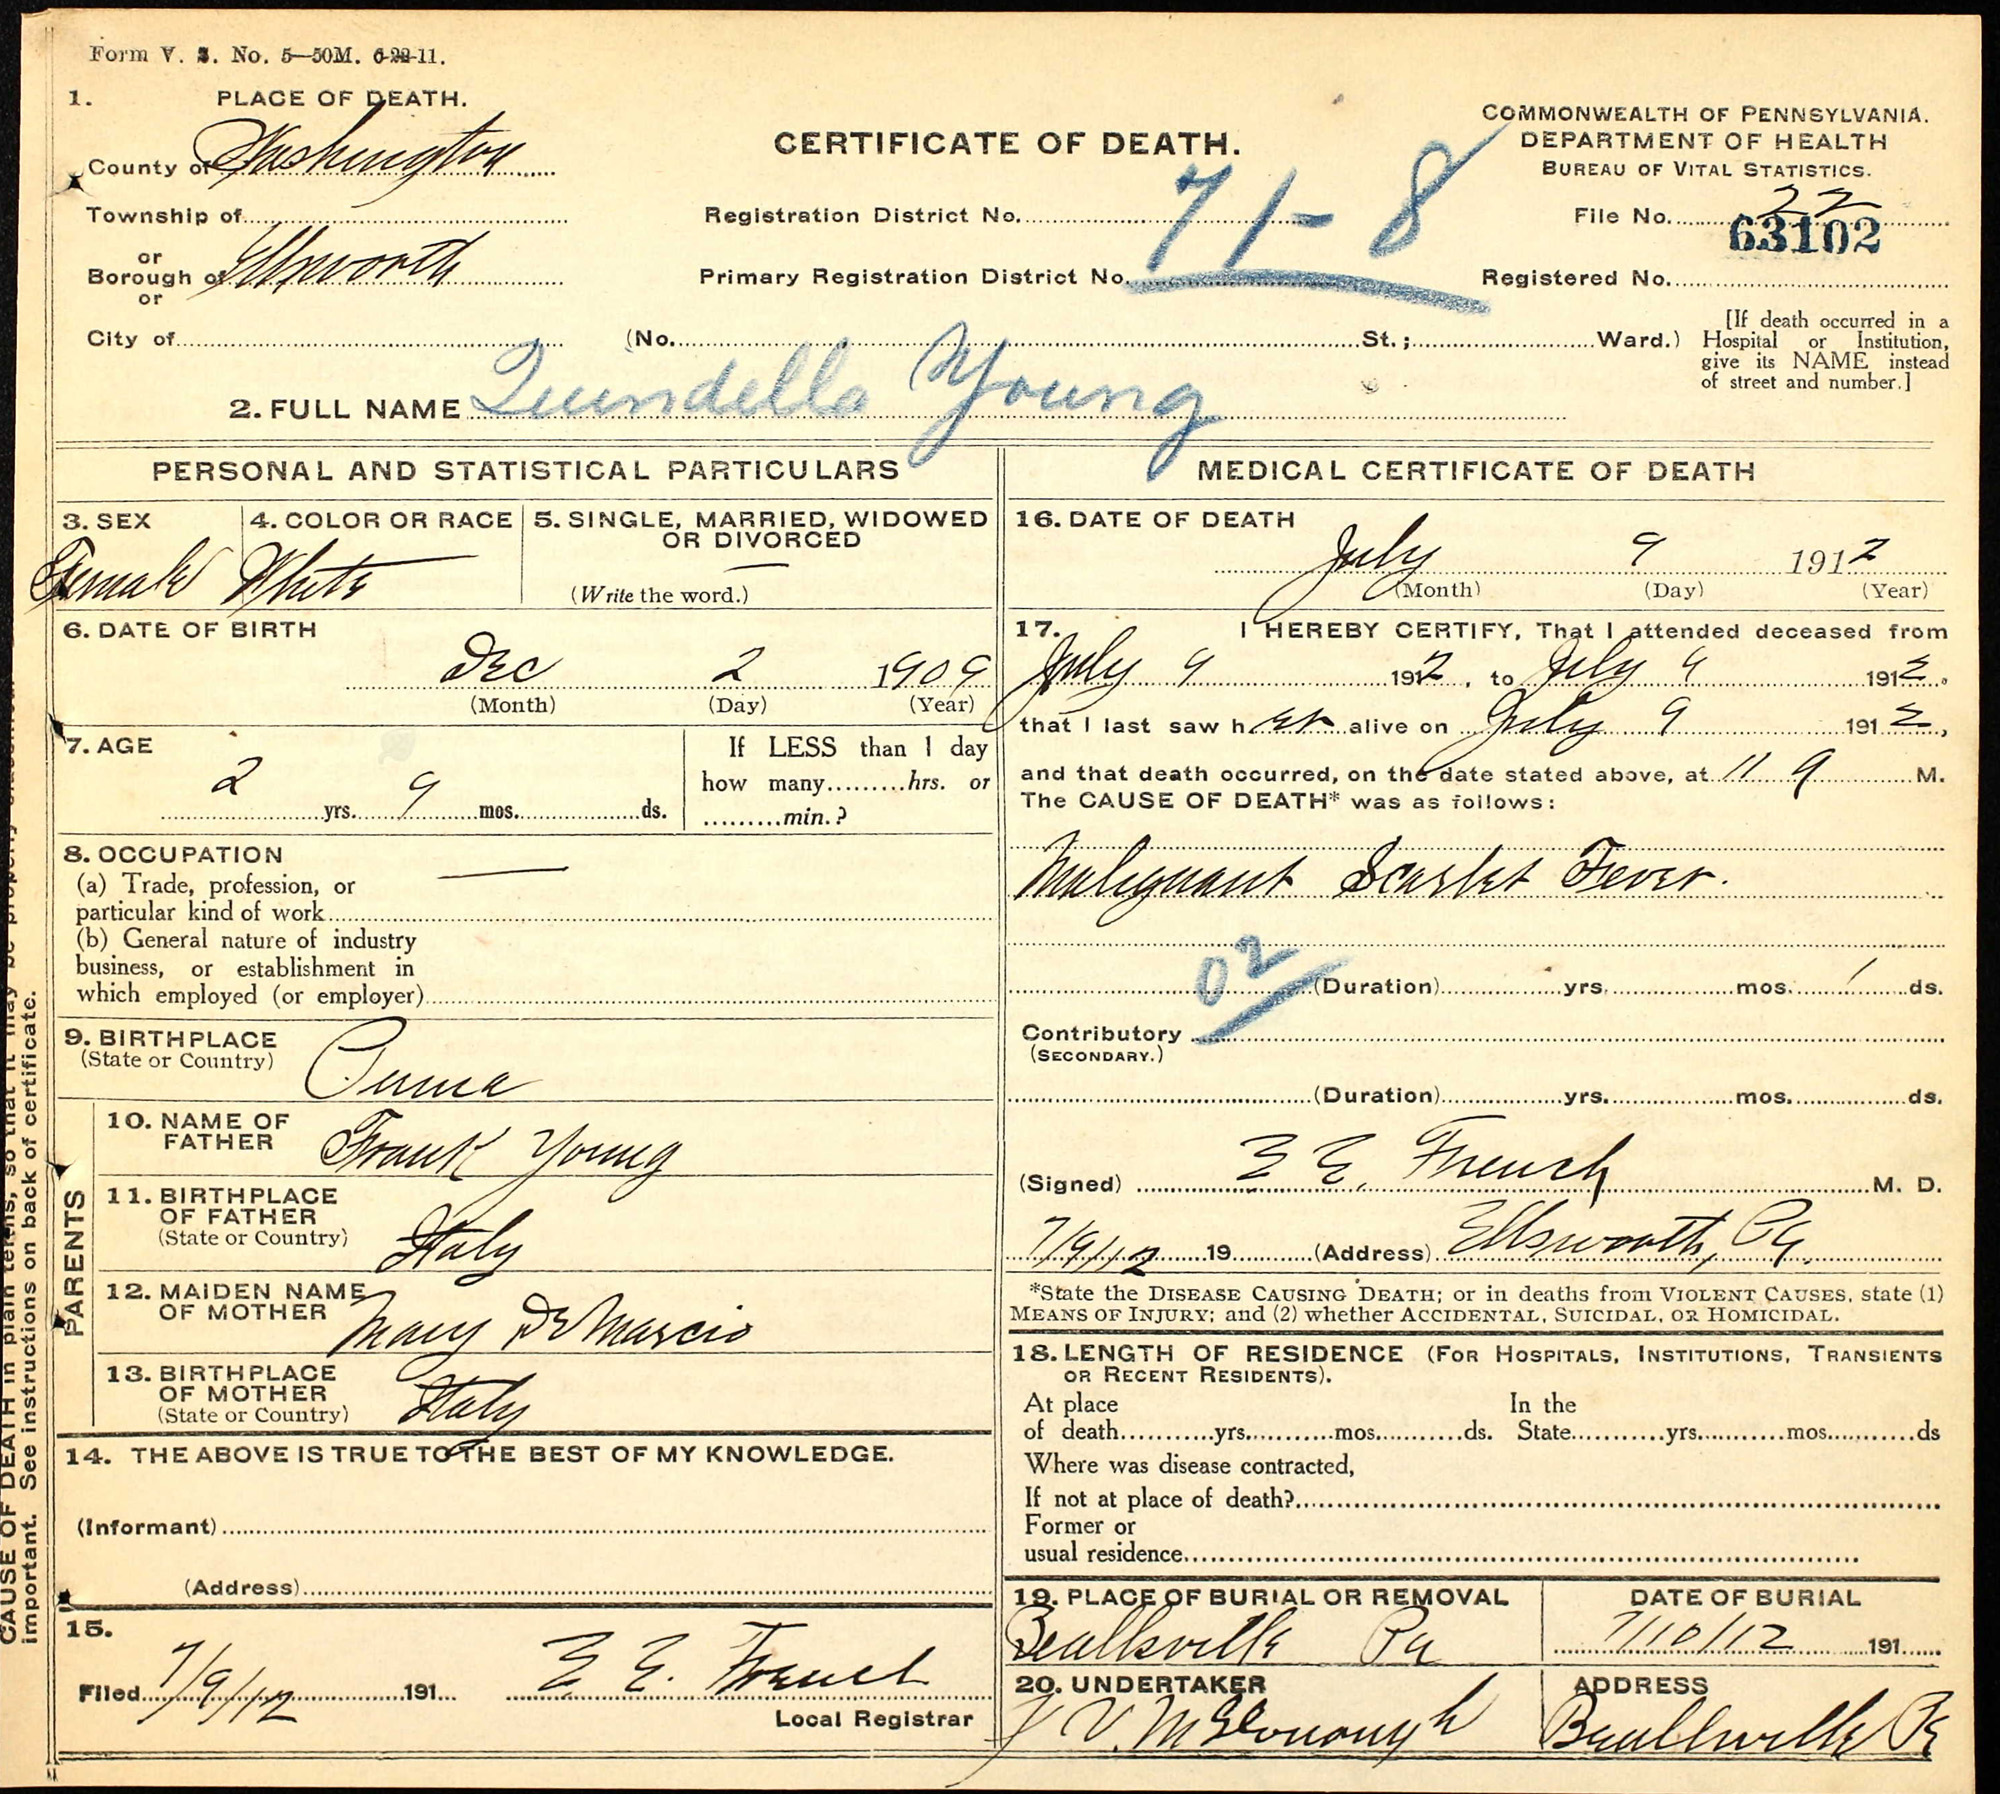 Form V. S. No. 5—50M. 6-22-11.
1. PLACE OF DEATH.
County of Washington
Township of
or
Borough of Ellsworth
or
City of
CERTIFICATE OF DEATH.
Registration District No.
Primary Registration District No. 71-8
(No. St.; Ward.)
COMMONWEALTH OF PENNSYLVANIA.
DEPARTMENT OF HEALTH
BUREAU OF VITAL STATISTICS.
File No. 22
63102
Registered No.
[If death occurred in a
Hospital or Institution,
give its NAME instead
of street and number.]
2. FULL NAME Quindella Young
PERSONAL AND STATISTICAL PARTICULARS
3. SEX
Female
4. COLOR OR RACE
White
5. SINGLE, MARRIED, WIDOWED
OR DIVORCED
(Write the word.)
6. DATE OF BIRTH
Dec 2 1909
(Month) (Day) (Year)
7. AGE
2 yrs. 9 mos. ds.
If LESS than 1 day
how many hrs. or
min.?
8. OCCUPATION
(a) Trade, profession, or
particular kind of work
(b) General nature of industry
business, or establishment in
which employed (or employer)
9. BIRTHPLACE
(State or Country)
Penna
PARENTS
10. NAME OF
FATHER
Frank Young
11. BIRTHPLACE
OF FATHER
(State or Country)
Italy
12. MAIDEN NAME
OF MOTHER
Mary DeMarcio
13. BIRTHPLACE
OF MOTHER
(State or Country)
Italy
14. THE ABOVE IS TRUE TO THE BEST OF MY KNOWLEDGE.
(Informant)
(Address)
15.
Filed 7/9/12 191 E E. French
Local Registrar
MEDICAL CERTIFICATE OF DEATH
16. DATE OF DEATH
July 9 1912
(Month) (Day) (Year)
17. I HEREBY CERTIFY, That I attended deceased from
July 9 1912, to July 9 1912.
that I last saw her alive on July 9 1912,
and that death occurred, on the date stated above, at 11 9 M.
The CAUSE OF DEATH* was as follows:
Malignant Scarlet Fever.
02
(Duration) yrs. mos. 1 ds.
Contributory
(SECONDARY.)
(Duration) yrs. mos. ds.
(Signed) E E. French M. D.
7/9/12 19 (Address) Ellsworth, Pa.
*State the DISEASE CAUSING DEATH; or in deaths from VIOLENT CAUSES, state (1)
MEANS OF INJURY; and (2) whether ACCIDENTAL, SUICIDAL, OR HOMICIDAL.
18. LENGTH OF RESIDENCE (FOR HOSPITALS, INSTITUTIONS, TRANSIENTS
OR RECENT RESIDENTS).
At place In the
of death yrs. mos. ds. State yrs. mos. ds
Where was disease contracted,
If not at place of death?
Former or
usual residence
19. PLACE OF BURIAL OR REMOVAL
Beallsville Pa
DATE OF BURIAL
7/10/12 191
20. UNDERTAKER
J V. McDonough
ADDRESS
Beallsville Pa
CAUSE OF DEATH in plain terms, so that it may be properly
important. See instructions on back of certificate.